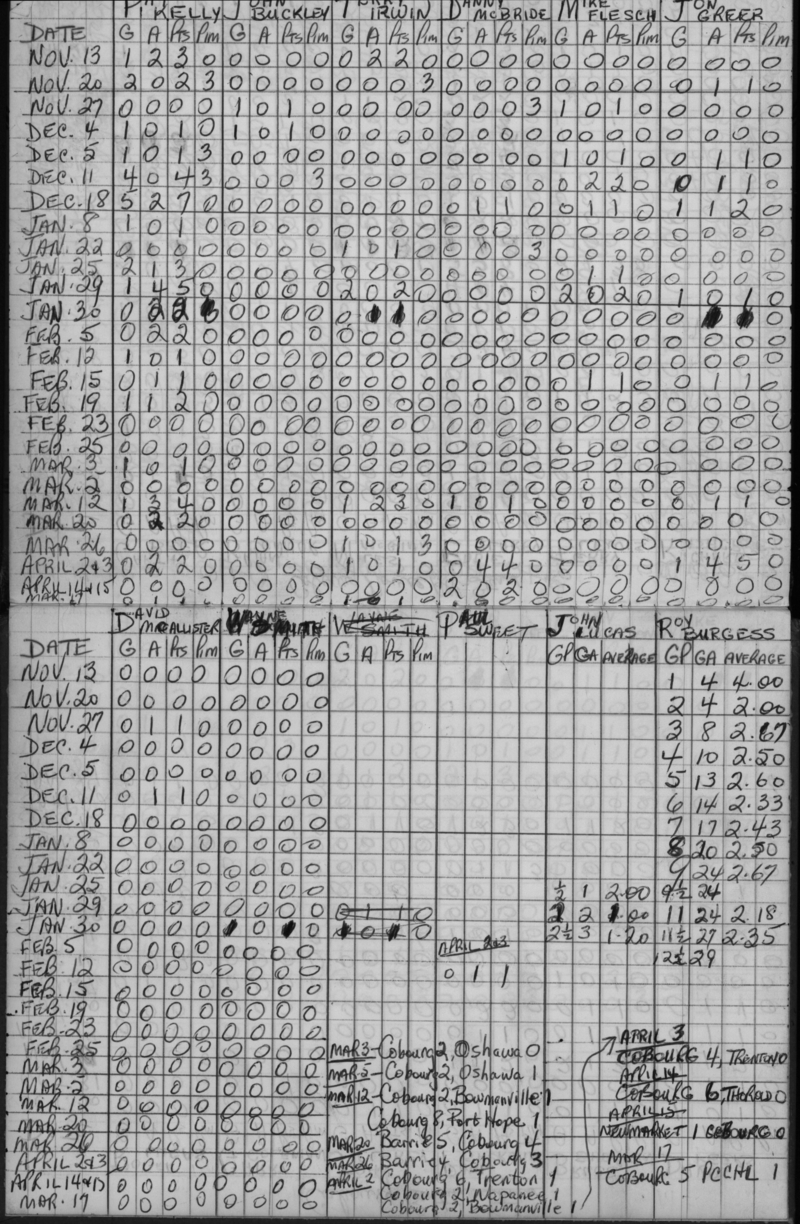 KELLY BUCKLEY IRWIN DANNY McBRIDE MIKE FLESCH JON GREER
DATE G A Pts Pim G A Pts Pim G A Pts Pim G A Pts Pim G A Pts Pim G A Pts Pim
NOV. 13 1 2 3 0 0 0 0 0 0 2 2 0 0 0 0 0 0 0 0 0 0 0 0 0
NOV. 20 2 0 2 3 0 0 0 0 0 0 0 3 0 0 0 0 0 0 0 0 0 1 1 0
NOV. 27 0 0 0 0 1 0 1 0 0 0 0 0 0 0 0 3 1 0 1 0 0 0 0 0
DEC. 4 1 0 1 0 1 0 1 0 0 0 0 0 0 0 0 0 0 0 0 0 0 0 0 0
DEC. 5 1 0 1 3 0 0 0 0 0 0 0 0 0 0 0 0 1 0 1 0 0 1 1 0
DEC. 11 4 0 4 3 0 0 0 3 0 0 0 0 0 0 0 0 0 2 2 0 0 1 1 0
DEC. 18 5 2 7 0 0 0 0 0 0 0 0 0 0 1 1 0 0 1 1 0 1 1 2 0
JAN. 8 1 0 1 0 0 0 0 0 0 0 0 0 0 0 0 0 0 0 0 0 0 0 0 0
JAN. 22 0 0 0 0 0 0 0 0 1 0 1 0 0 0 0 3 0 0 0 0 0 0 0 0
JAN. 25 2 1 3 0 0 0 0 0 0 0 0 0 0 0 0 0 0 1 1 0 0 0 0 0
JAN. 29 1 4 5 0 0 0 0 0 2 0 2 0 0 0 0 0 2 0 2 0 1 0 1 0
JAN. 30 0 2 2 0 0 0 0 0 1 1 0 0 0 0 0 0 0 0 0 0 0
FEB. 5 0 2 2 0 0 0 0 0 0 0 0 0 0 0 0 0 0 0 0 0 0 0 0 0
FEB. 12 1 0 1 0 0 0 0 0 0 0 0 0 0 0 0 0 0 0 0 0 0 0 0 0
FEB. 15 0 1 1 0 0 0 0 0 0 0 0 0 0 0 0 0 0 1 1 0 0 1 1 0
FEB. 19 1 1 2 0 0 0 0 0 0 0 0 0 0 0 0 0 0 0 0 0 0 0 0 0
FEB. 23 0 0 0 0 0 0 0 0 0 0 0 0 0 0 0 0 0 0 0 0 0 0 0 0
FEB. 25 0 0 0 0 0 0 0 0 0 0 0 0 0 0 0 0 0 0 0 0 0 0 0 0
MAR. 3 1 0 1 0 0 0 0 0 0 0 0 0 0 0 0 0 0 0 0 0 0 0 0 0
MAR. 2 0 0 0 0 0 0 0 0 0 0 0 0 0 0 0 0 0 0 0 0 0 0 0 0
MAR. 12 1 3 4 0 0 0 0 0 1 2 3 0 1 0 1 0 0 0 0 0 0 1 1 0
MAR. 20 0 2 2 0 0 0 0 0 0 0 0 0 0 0 0 0 0 0 0 0 0 0 0 0
MAR. 26 0 0 0 0 0 0 0 0 1 0 1 3 0 0 0 0 0 0 0 0 0 0 0 0
APRIL 2&3 0 2 2 0 0 0 0 0 1 0 1 0 0 4 4 0 0 0 0 0 1 4 5 0
APRIL 14&15 0 0 0 0 0 0 0 0 0 0 0 0 2 0 2 0 0 0 0 0 0 0 0 0
DAVID McALLISTER WAYNE SMITH WAYNE SMITH PAUL SWEET JOHN LUCAS ROY BURGESS
DATE G A Pts Pim G A Pts Pim G A Pts Pim GP GA AVERAGE GP GA AVERAGE
NOV. 13 0 0 0 0 0 0 0 0 1 4 4.00
NOV. 20 0 0 0 0 0 0 0 0 2 4 2.00
NOV. 27 0 1 1 0 0 0 0 0 3 8 2.67
DEC. 4 0 0 0 0 0 0 0 0 4 10 2.50
DEC. 5 0 0 0 0 0 0 0 0 5 13 2.60
DEC. 11 0 1 1 0 0 0 0 0 6 14 2.33
DEC. 18 0 0 0 0 0 0 0 0 7 17 2.43
JAN. 8 0 0 0 0 0 0 0 0 8 20 2.50
JAN. 22 0 0 0 0 0 0 0 0 9 24 2.67
JAN. 25 0 0 0 0 0 0 0 0 ½ 1 2.00 9½ 24
JAN. 29 0 0 0 0 0 0 0 0 0 1 1 0 2 1.00 11 24 2.18
JAN. 30 0 0 0 0 0 0 0 0 2½ 3 1.20 11½ 27 2.35
FEB. 5 0 0 0 0 0 0 0 0 APRIL 2&3 12½ 29
FEB. 12 0 0 0 0 0 0 0 0 0 1 1
FEB. 15 0 0 0 0 0 0 0 0
FEB. 19 0 0 0 0 0 0 0 0
FEB. 23 0 0 0 0 0 0 0 0 APRIL 3
FEB. 25 0 0 0 0 0 0 0 0 MAR 3-Cobourg 2, Oshawa 0 COBOURG 4, TRENTON 0
MAR. 3 0 0 0 0 0 0 0 0 MAR 2-Cobourg 2, Oshawa 1 APRIL 14
MAR. 2 0 0 0 0 0 0 0 0 MAR 12-Cobourg 2, Bowmanville 1 COBOURG 6, THOROLD 0
MAR. 12 0 0 0 0 0 0 0 0 Cobourg 8, Port Hope 1 APRIL 15
MAR. 20 0 0 0 0 0 0 0 0 MAR 20 Barrie 5, Cobourg 4 NEWMARKET 1 COBOURG 0
MAR. 26 0 0 0 0 0 0 0 0 MAR 26 Barrie 4, Cobourg 3 MAR 17
APRIL 2&3 0 0 0 0 0 0 0 0 APRIL 2 Cobourg 6, Trenton 1 COBOURG 5 PCCHL 1
APRIL 14&15 0 0 0 0 0 0 0 0 Cobourg 2, Napanee 1
MAR. 17 0 0 0 0 0 0 0 0 Cobourg 2, Bowmanville 1